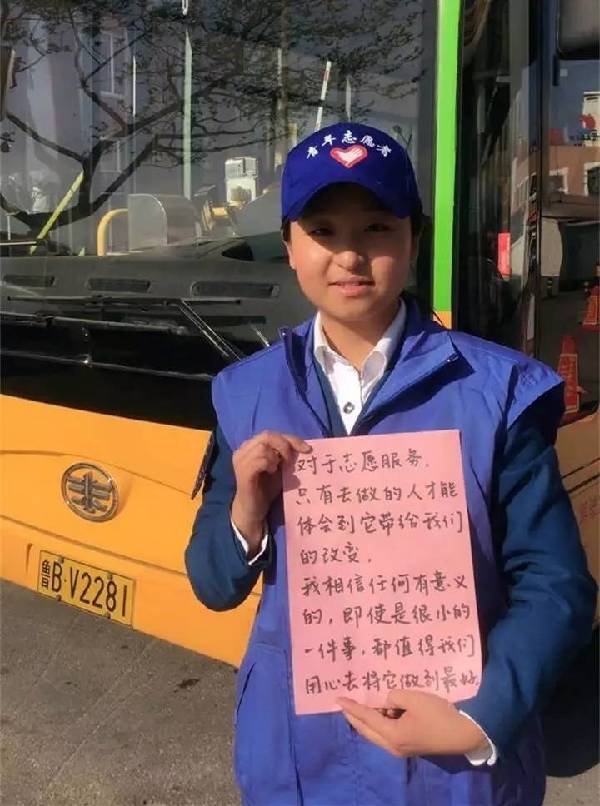 青年志愿者
对于志愿服务，
只有去做的人才能
体会到它带给我们
的改变。
我相信任何有意义
的，即使是很小的
一件事，都值得我们
用心去将它做到最好
鲁B·V2281